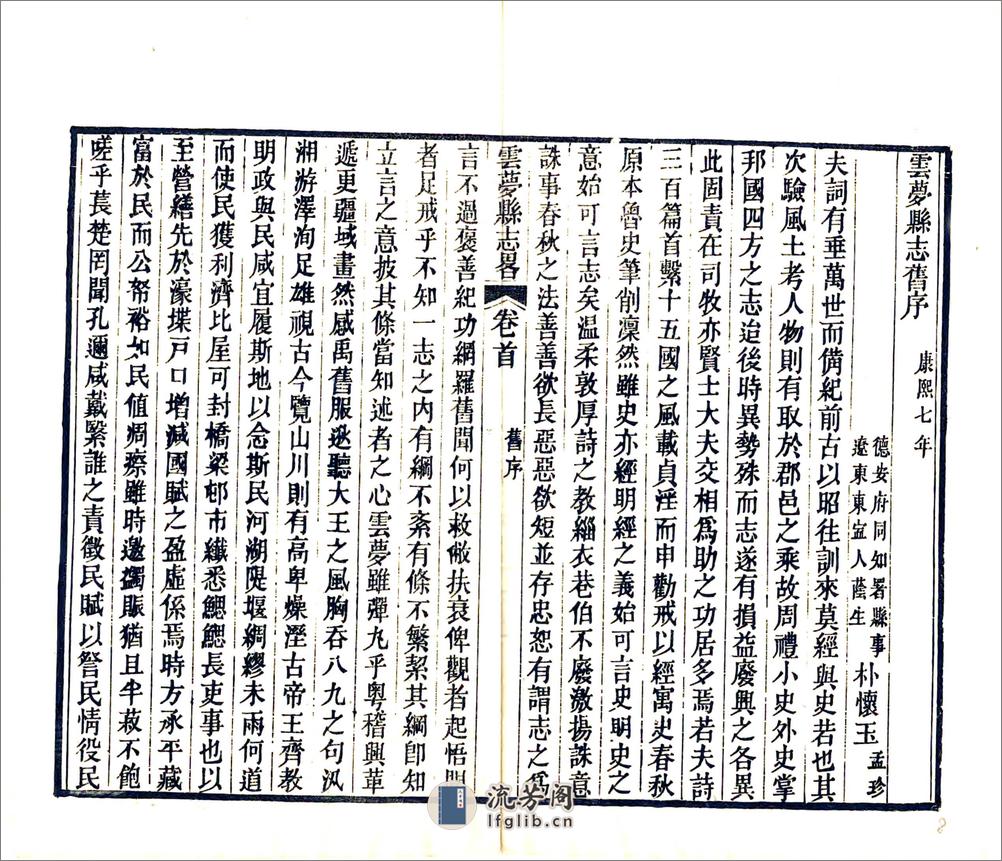 雲夢縣志舊序
康熙七年
德安府同知署縣事
遼東東寍人蔭生
朴懷玉
孟珍
夫詞有垂萬世而備紀前古以昭往訓來莫經與史若也其
次驗風土考人物則有取於郡邑之乘故周禮小史外史掌
邦國四方之志迨後時異勢殊而志遂有損益廢興之各異
此固責在司牧亦賢士大夫交相爲助之功居多焉若夫詩
三百篇首繫十五國之風載貞淫而申勸戒以經寓史春秋
原本魯史筆削凜然雖史亦經明經之義始可言史明史之
意始可言志矣温柔敦厚詩之教緇衣巷伯不廢激揚誅意
誅事春秋之法善善欲長惡惡欲短並存忠恕有謂志之爲
雲夢縣志畧
卷首
舊序
言不過褒善紀功網羅舊聞何以救敝扶衰俾觀者起悟聞
者足戒乎不知一志之内有綱不紊有條不繁絜其綱卽知
立言之意披其條當知述者之心雲夢雖彈丸乎粤稽興革
遞更疆域畫然感禹舊服逖聽大王之風胸吞八九之句汎
湘游澤洵足雄視古今覽山川則有高卑燥溼古帝王齊教
明政與民咸宜履斯地以念斯民河湖隄堰綢繆未雨何道
而使民獲利濟比屋可封橋梁邨市纖悉鰓鰓長吏事也以
至營繕先於濠堞戸口增減國賦之盈虛係焉時方承平藏
富於民而公帑裕如民值凋瘵雖時邀蠲賑猶且半菽不飽
嗟乎萇楚罔聞孔邇咸戴繄誰之責徵民賦以詧民情役民
流芳阁
lfglib.cn
8